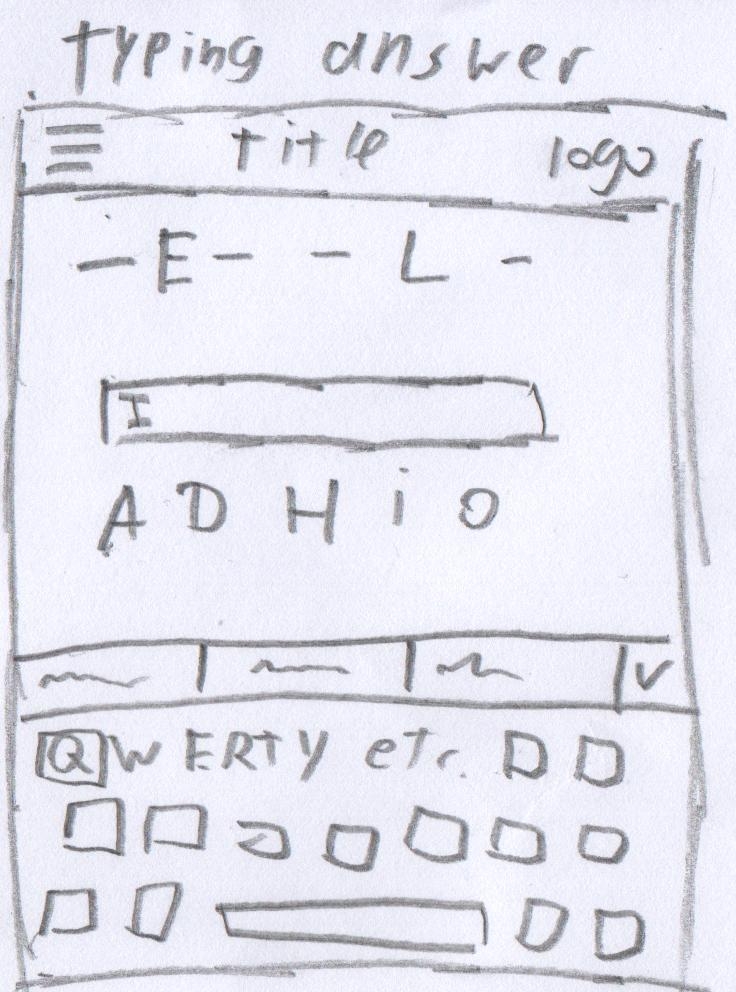 Typing answer
title logo
- E - - L -
I
A D H i O
QWERTY etc.